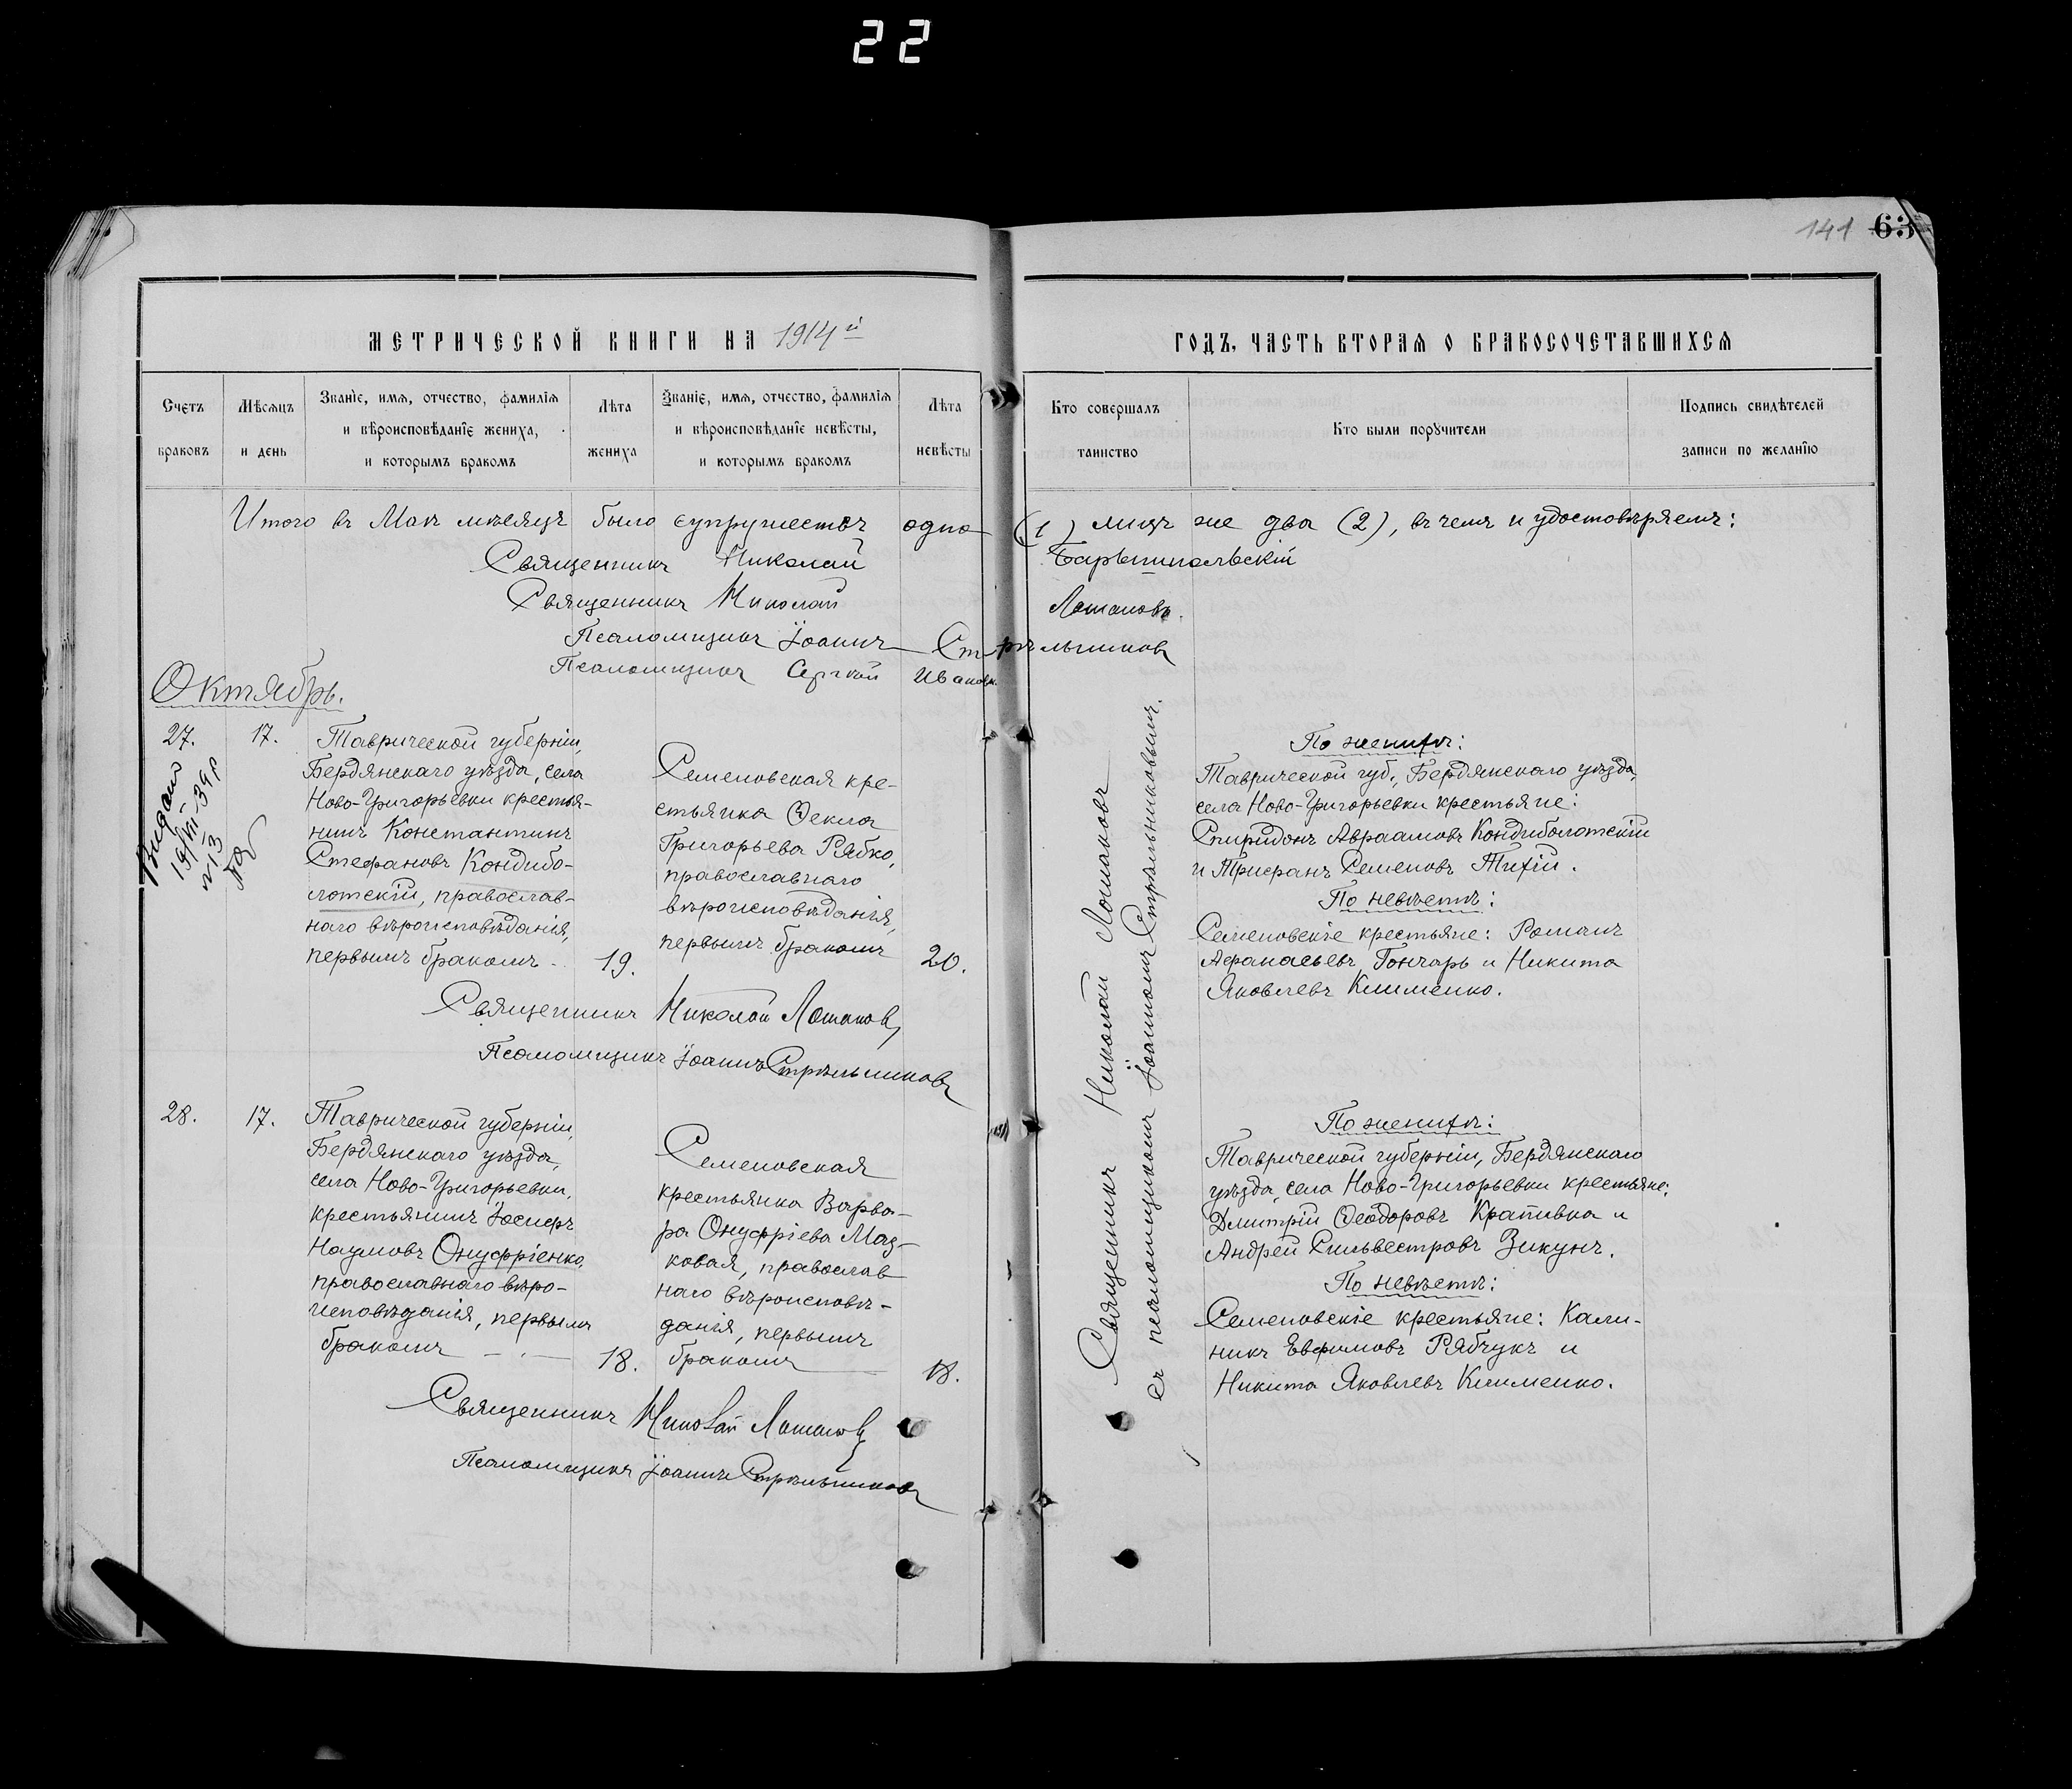 22
141 63
МЕТРИЧЕСКОЙ КНИГИ НА 1914й
ГОДЪ, ЧАСТЬ ВТОРАЯ О БРАКОСОЧЕТАВШИХСЯ
Счетъ браковъ
Мѣсяцъ и день
Званіе, имя, отчество, фамилія и вѣроисповѣданіе жениха, и которымъ бракомъ
Лѣта жениха
Званіе, имя, отчество, фамилія и вѣроисповѣданіе невѣсты, и которымъ бракомъ
Лѣта невѣсты
Кто совершалъ таинство
Кто были поручители
Подпись свидѣтелей записи по желанію
Итого въ Маѣ мѣсяцѣ было супружествъ одно (1) лицъ же два (2), въ чемъ и удостовѣряемъ:
Священникъ Николай Барыпипольскій
Священникъ Николай Лотаковъ.
Псаломщикъ Іоаннъ Стрѣльниковъ
Псаломщикъ Сергѣй Ивановъ
Октябрь.
27.
17.
Видано
19/VII-39 р
№13
Таврической губерніи,
Бердянскаго уѣзда, села
Ново-Григорьевки крестья-
нинъ Константинъ
Стефановъ Кондибо-
лотскій, православ-
наго вѣроисповѣданія,
первымъ бракомъ
19.
Семеновская кре-
стьянка Ѳекла
Григорьева Рябко,
православнаго
вѣроисповѣданія,
первымъ бракомъ
20.
Священникъ Николай Лотаковъ
Псаломщикъ Іоаннъ Стрѣльниковъ
Священникъ Николай Лотаковъ
съ псаломщикомъ Іоанномъ Стрѣльниковымъ.
По женихѣ:
Таврической губ., Бердянскаго уѣзда,
села Ново-Григорьевки крестьяне:
Спиридонъ Авраамовъ Кондиболотскій
и Трифанъ Семеновъ Тихій.
По невѣстѣ:
Семеновскіе крестьяне: Романъ
Афанасьевъ Гончарь и Никита
Яковлевъ Клименко.
28.
17.
Таврической губерніи,
Бердянскаго уѣзда,
села Ново-Григорьевки,
крестьянинъ Іосифъ
Наумовъ Онуфріенко,
православнаго вѣро-
исповѣданія, первымъ
бракомъ
18.
Семеновская
крестьянка Варва-
ра Онуфріева Маз-
ковая, православ
наго вѣроисповѣ-
данія, первымъ
бракомъ
18.
Священникъ Николай Лотаковъ
Псаломщикъ Іоаннъ Стрѣльниковъ
По женихѣ:
Таврической губерніи, Бердянскаго
уѣзда, села Ново-Григорьевки крестьяне:
Дмитрій Ѳеодоровъ Крапивка и
Андрей Сильвестровъ Зикунъ.
По невѣстѣ:
Семеновскіе крестьяне: Кали-
никъ Евфимовъ Рябчукъ и
Никита Яковлевъ Клименко.